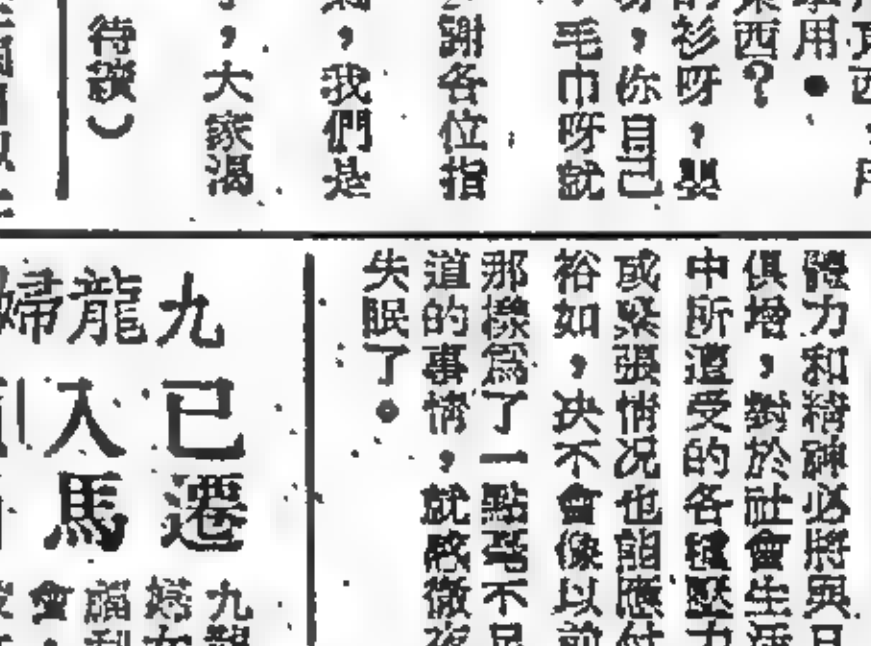 用。
西?
衫呀,
,你自己
毛巾呀就
謝各位指
,我們是
,大家渴
待續)
體力和精神必將與日
俱增,對於社會生活
中所遭受的各種壓力
或緊張情况也能應付
裕如,决不會像以前
那樣爲了一點毫不足
道的事情,就感徹夜
失眠了。
九龍婦
已遷
入馬
九龍
婦女
福利
會,